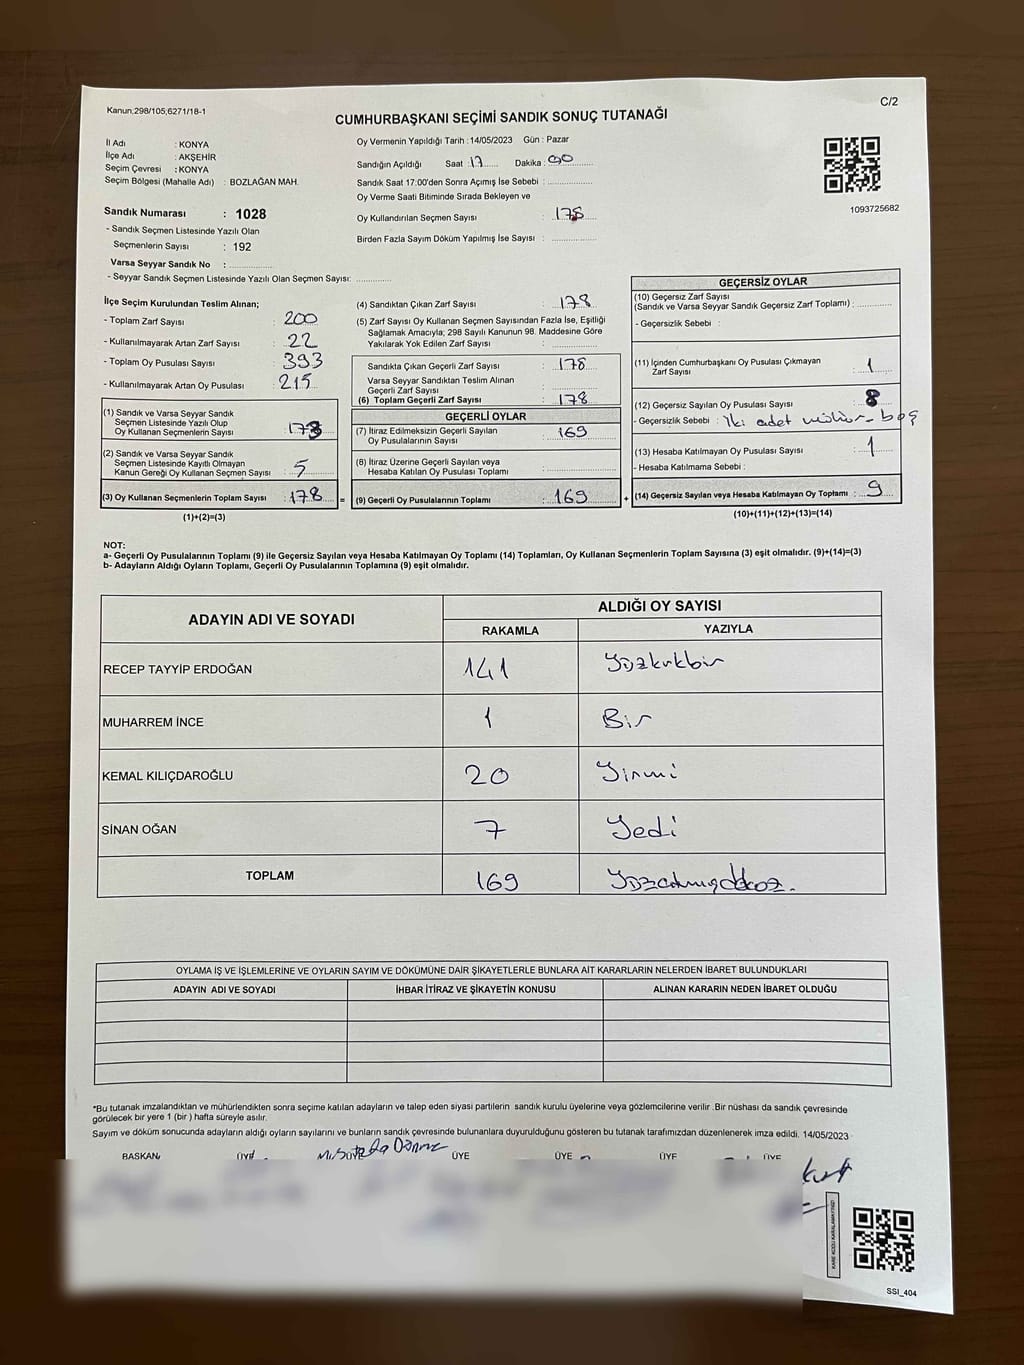 Kanun:298/105;6271/18-1
C/2
CUMHURBAŞKANI SEÇİMİ SANDIK SONUÇ TUTANAĞI
İl Adı : KONYA
İlçe Adı : AKŞEHİR
Seçim Çevresi : KONYA
Seçim Bölgesi (Mahalle Adı) : BOZLAĞAN MAH.
Sandık Numarası : 1028
- Sandık Seçmen Listesinde Yazılı Olan
Seçmenlerin Sayısı : 192
Varsa Seyyar Sandık No :
- Seyyar Sandık Seçmen Listesinde Yazılı Olan Seçmen Sayısı:
Oy Vermenin Yapıldığı Tarih :14/05/2023 Gün : Pazar
Sandığın Açıldığı Saat :17 Dakika :00
Sandık Saat 17:00'den Sonra Açımış İse Sebebi :
Oy Verme Saati Bitiminde Sırada Bekleyen ve
Oy Kullandırılan Seçmen Sayısı : 178
Birden Fazla Sayım Döküm Yapılmış İse Sayısı :
1093725682
İlçe Seçim Kurulundan Teslim Alınan;
- Toplam Zarf Sayısı : 200
- Kullanılmayarak Artan Zarf Sayısı : 22
- Toplam Oy Pusulası Sayısı : 393
- Kullanılmayarak Artan Oy Pusulası : 215
(1) Sandık ve Varsa Seyyar Sandık
Seçmen Listesinde Yazılı Olup
Oy Kullanan Seçmenlerin Sayısı : 173
(2) Sandık ve Varsa Seyyar Sandık
Seçmen Listesinde Kayıtlı Olmayan
Kanun Gereği Oy Kullanan Seçmen Sayısı : 5
(3) Oy Kullanan Seçmenlerin Toplam Sayısı : 178
(1)+(2)=(3)
(4) Sandıktan Çıkan Zarf Sayısı : 178
(5) Zarf Sayısı Oy Kullanan Seçmen Sayısından Fazla İse, Eşitliği
Sağlamak Amacıyla; 298 Sayılı Kanunun 98. Maddesine Göre
Yakılarak Yok Edilen Zarf Sayısı :
Sandıkta Çıkan Geçerli Zarf Sayısı : 178
Varsa Seyyar Sandıktan Teslim Alınan
Geçerli Zarf Sayısı :
(6) Toplam Geçerli Zarf Sayısı : 178
GEÇERLİ OYLAR
(7) İtiraz Edilmeksizin Geçerli Sayılan
Oy Pusulalarının Sayısı : 169
(8) İtiraz Üzerine Geçerli Sayılan veya
Hesaba Katılan Oy Pusulası Toplamı :
= (9) Geçerli Oy Pusulalarının Toplamı : 169 +
GEÇERSİZ OYLAR
(10) Geçersiz Zarf Sayısı
(Sandık ve Varsa Seyyar Sandık Geçersiz Zarf Toplamı) :
- Geçersizlik Sebebi :
(11) İçinden Cumhurbaşkanı Oy Pusulası Çıkmayan
Zarf Sayısı : 1
(12) Geçersiz Sayılan Oy Pusulası Sayısı : 8
- Geçersizlik Sebebi : İki adet mühür - boş
(13) Hesaba Katılmayan Oy Pusulası Sayısı : 1
- Hesaba Katılmama Sebebi :
(14) Geçersiz Sayılan veya Hesaba Katılmayan Oy Toplamı : 9
(10)+(11)+(12)+(13)=(14)
NOT:
a- Geçerli Oy Pusulalarının Toplamı (9) ile Geçersiz Sayılan veya Hesaba Katılmayan Oy Toplamı (14) Toplamları, Oy Kullanan Seçmenlerin Toplam Sayısına (3) eşit olmalıdır. (9)+(14)=(3)
b- Adayların Aldığı Oyların Toplamı, Geçerli Oy Pusulalarının Toplamına (9) eşit olmalıdır.
ADAYIN ADI VE SOYADI
ALDIĞI OY SAYISI
RAKAMLA YAZIYLA
RECEP TAYYİP ERDOĞAN 141 Yüzkırkbir
MUHARREM İNCE 1 Bir
KEMAL KILIÇDAROĞLU 20 Yirmi
SİNAN OĞAN 7 Yedi
TOPLAM 169 Yüzatmışdokuz.
OYLAMA İŞ VE İŞLEMLERİNE VE OYLARIN SAYIM VE DÖKÜMÜNE DAİR ŞİKAYETLERLE BUNLARA AİT KARARLARIN NELERDEN İBARET BULUNDUKLARI
ADAYIN ADI VE SOYADI İHBAR İTİRAZ VE ŞİKAYETİN KONUSU ALINAN KARARIN NEDEN İBARET OLDUĞU
*Bu tutanak imzalandıktan ve mühürlendikten sonra seçime katılan adayların ve talep eden siyasi partilerin sandık kurulu üyelerine veya gözlemcilerine verilir .Bir nüshası da sandık çevresinde
görülecek bir yere 1 (bir ) hafta süreyle asılır.
Sayım ve döküm sonucunda adayların aldığı oyların sayılarını ve bunların sandık çevresinde bulunanlara duyurulduğunu gösteren bu tutanak tarafımızdan düzenlenerek imza edildi. 14/05/2023
BAŞKAN ÜYE ÜYE ÜYE ÜYE ÜYE ÜYE
SSI_404